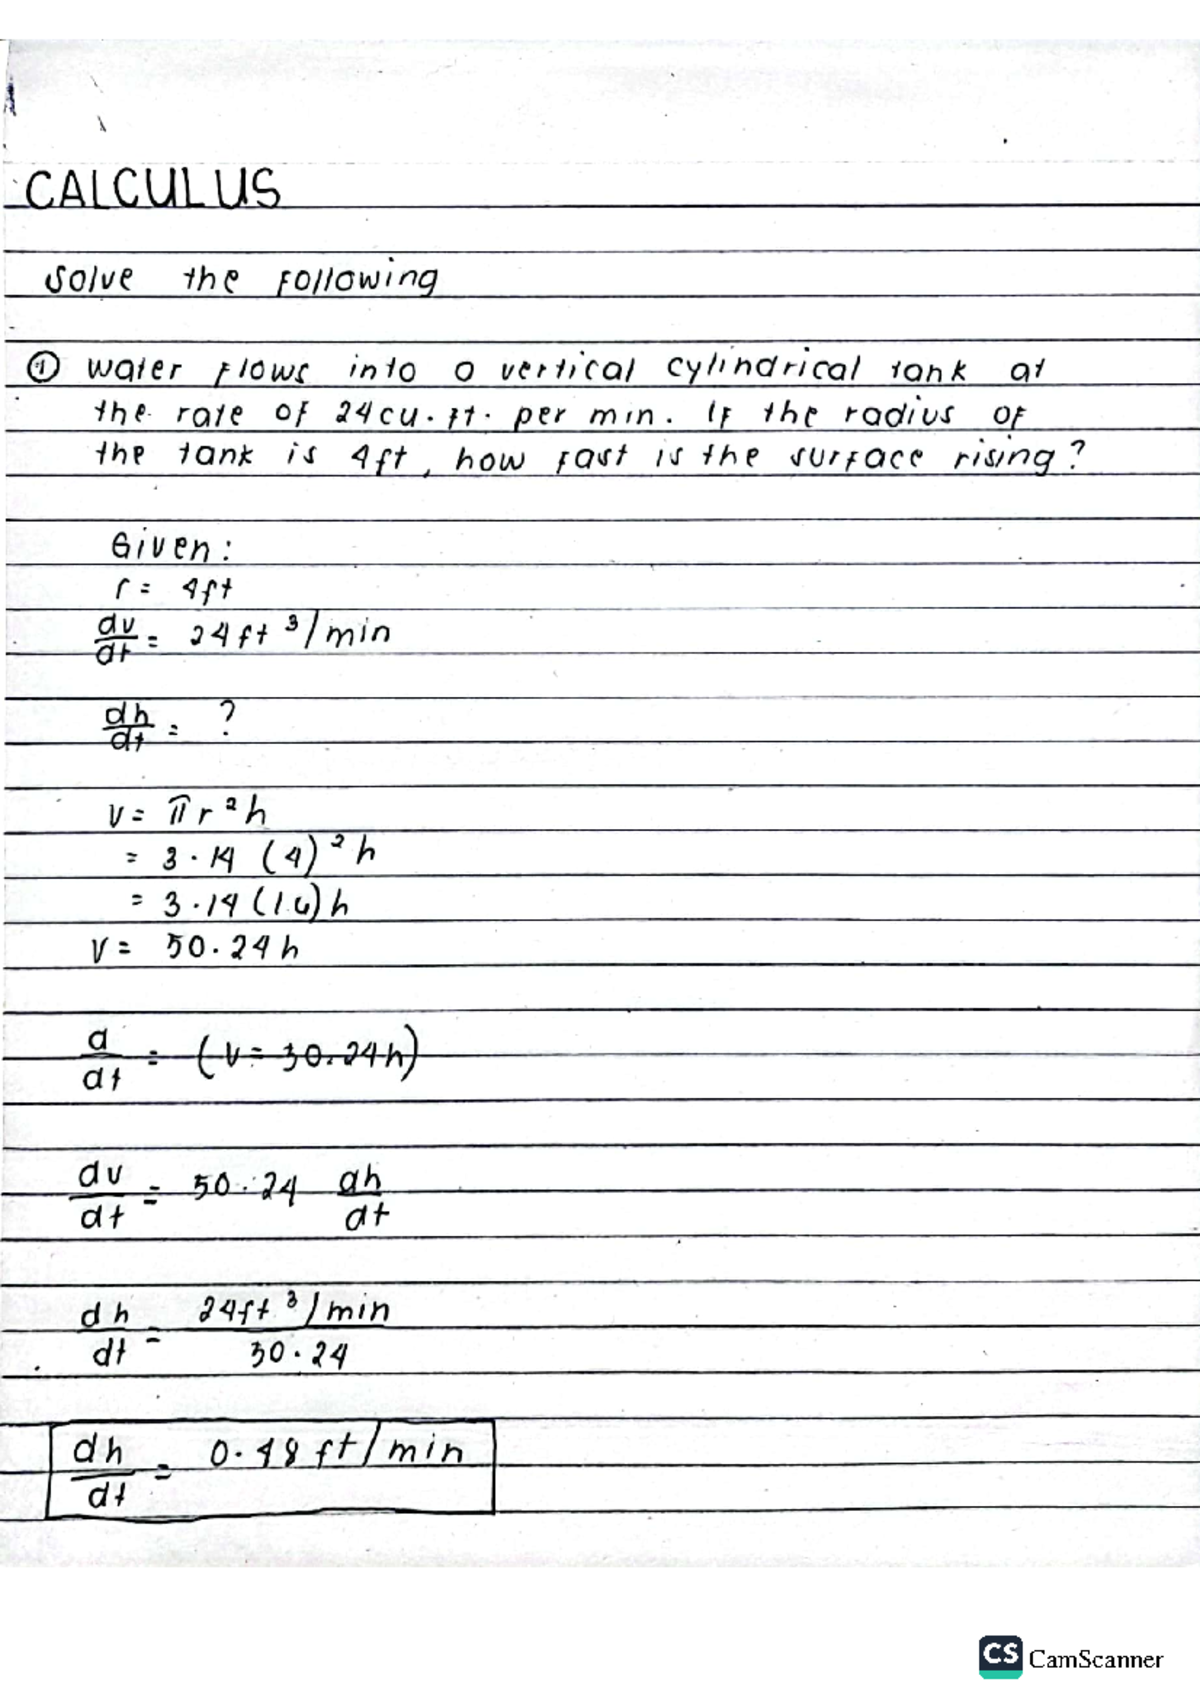 CALCULUS
Solve the following
① water flows into a vertical cylindrical tank at
the rate of 24 cu. ft. per min. If the radius of
the tank is 4ft, how fast is the surface rising?
Given:
r = 4ft
dv/dt = 24ft³/min
dh/dt = ?
V = πr²h
= 3.14 (4)²h
= 3.14 (16)h
V = 50.24h
d/dt = (V = 50.24h)
dv/dt = 50.24 dh/dt
dh/dt = 24ft³/min / 50.24
dh/dt = 0.48 ft/min
CS CamScanner